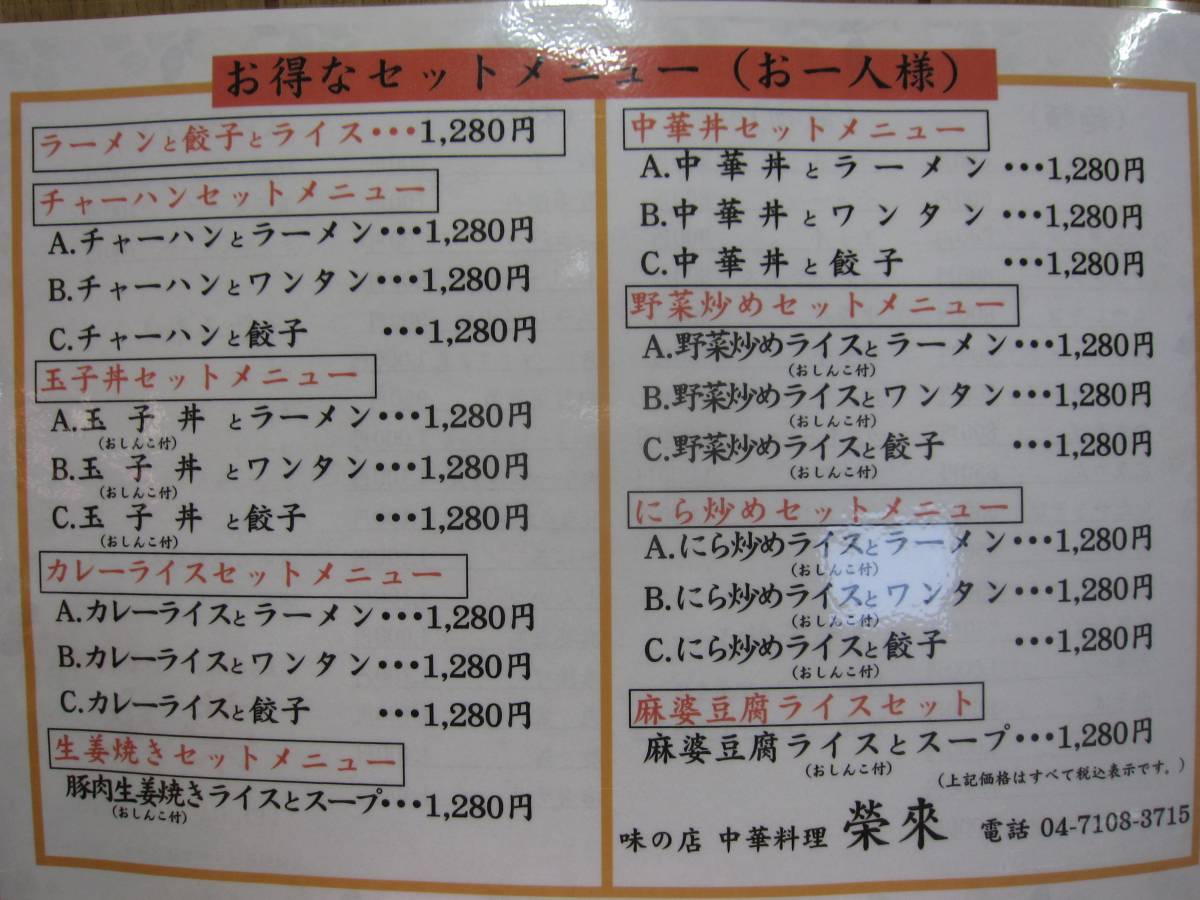 お得なセットメニュー（お一人様）
ラーメンと餃子とライス・・・1,280円
チャーハンセットメニュー
A.チャーハンとラーメン・・・1,280円
B.チャーハンとワンタン・・・1,280円
C.チャーハンと餃子 ・・・1,280円
玉子丼セットメニュー
A.玉子丼とラーメン・・・1,280円
（おしんこ付）
B.玉子丼とワンタン・・・1,280円
（おしんこ付）
C.玉子丼と餃子 ・・・1,280円
（おしんこ付）
カレーライスセットメニュー
A.カレーライスとラーメン・・・1,280円
B.カレーライスとワンタン・・・1,280円
C.カレーライスと餃子 ・・・1,280円
生姜焼きセットメニュー
豚肉生姜焼きライスとスープ・・・1,280円
（おしんこ付）
中華丼セットメニュー
A.中華丼とラーメン・・・1,280円
B.中華丼とワンタン・・・1,280円
C.中華丼と餃子 ・・・1,280円
野菜炒めセットメニュー
A.野菜炒めライスとラーメン・・・1,280円
（おしんこ付）
B.野菜炒めライスとワンタン・・・1,280円
（おしんこ付）
C.野菜炒めライスと餃子 ・・・1,280円
（おしんこ付）
にら炒めセットメニュー
A.にら炒めライスとラーメン・・・1,280円
（おしんこ付）
B.にら炒めライスとワンタン・・・1,280円
（おしんこ付）
C.にら炒めライスと餃子 ・・・1,280円
（おしんこ付）
麻婆豆腐ライスセット
麻婆豆腐ライスとスープ・・・1,280円
（おしんこ付）
（上記価格はすべて税込表示です。）
味の店 中華料理 榮來 電話 04-7108-3715